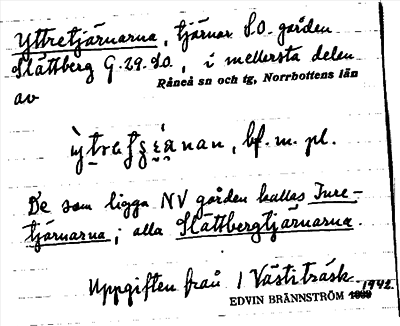 Yttretjärnarna, tjärnar S.O. gården
Slättberg G.29.S.O., i mellersta delen
Råneå sn och tg, Norrbottens län
av
bf. m. pl.
De som ligga NV gården kallas Inre-
tjärnarna; alla Slättbergtjärnarna.
Uppgiften från 1 Västiträsk
1942.
EDVIN BRÄNNSTRÖM